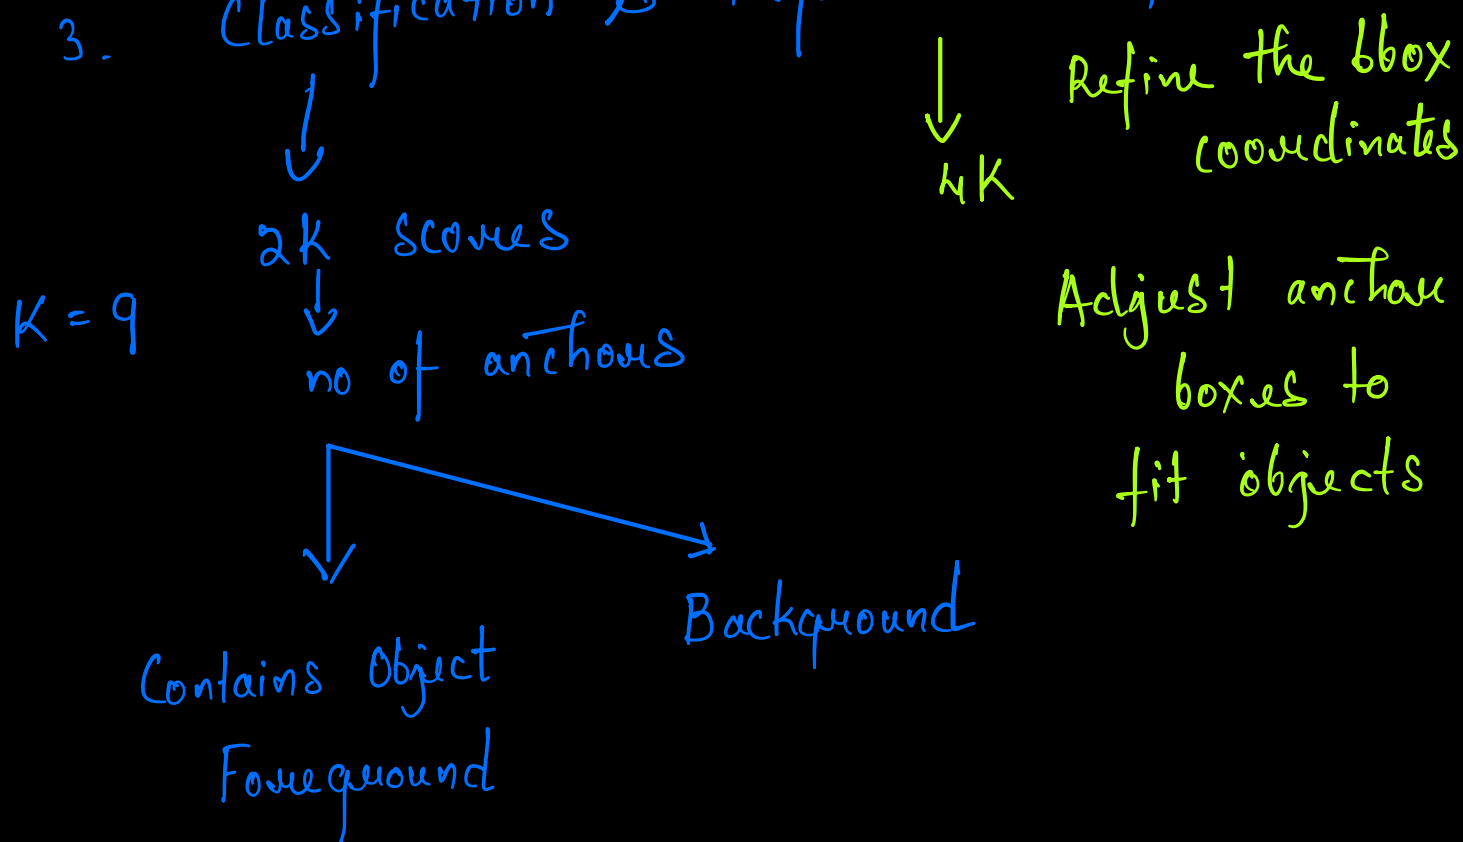 3. Classification &
2K scores
K = 9
no of anchors
Contains Object
Foreground
Background
4K
Refine the bbox
coordinates
Adjust anchor
boxes to
fit objects